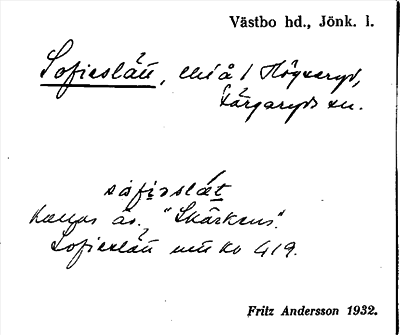 Västbo hd., Jönk. l.
Sofieslätt, på 1 Högaryd,
Färgaryds sn.
sòfislæt
kallas äv. "Skärkens".
Sofieslätt 419.
Fritz Andersson 1932.